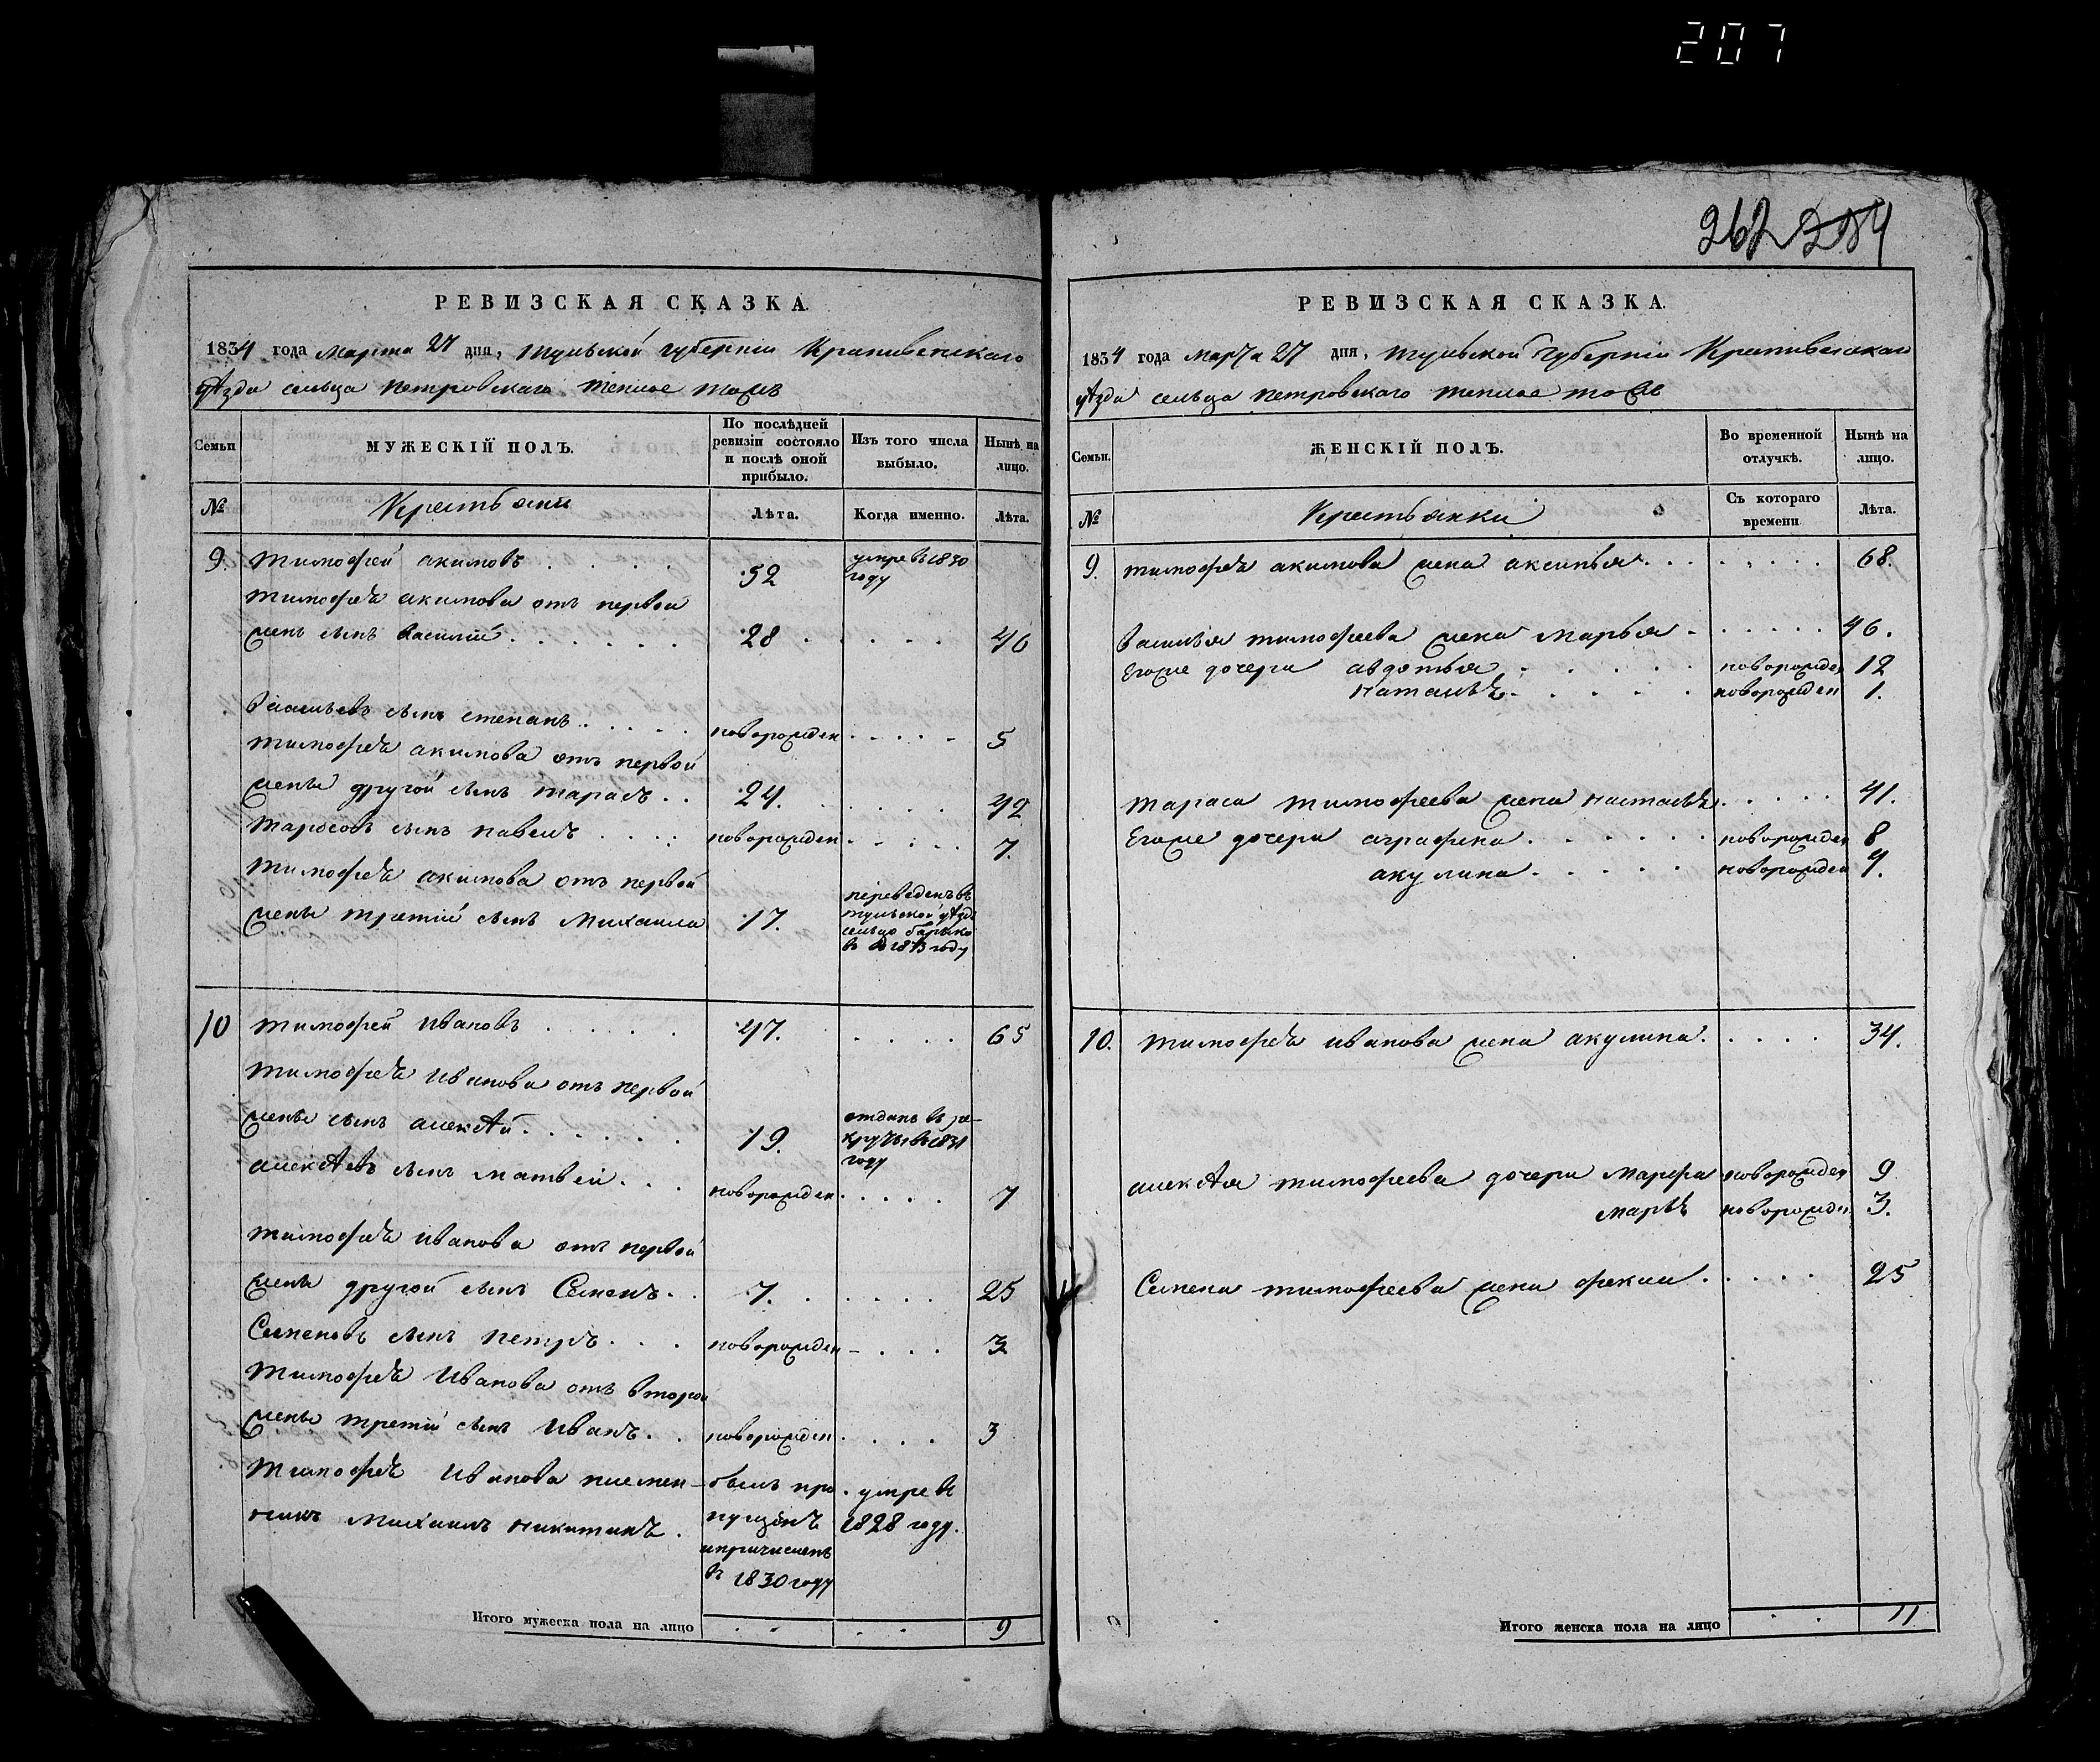 207
262 284
РЕВИЗСКАЯ СКАЗКА.
1834 года Марта 27 дня, Тульской Губерніи Крапивенскаго
уѣзда сельца Петровскаго Теплое тожъ
Семьи
МУЖЕСКІЙ ПОЛЪ.
По послѣдней ревизіи состояло и послѣ оной прибыло.
Изъ того числа выбыло.
Нынѣ на лицо.
№
Крестьяне
Лѣта.
Когда именно.
Лѣта.
9. Тимофей акимовъ . . . . 52 умре въ 1830 году
Тимофѣя акимова отъ первой
жены сынъ Василий . . . . . . 28 . . . . . 46
Васильевъ сынъ степанъ . . . . новорожден . . . . . 5
Тимофѣя акимова отъ первой
жены другой сынъ тарасъ . . 24. . . . . . 42
Тарасовъ сынъ павелъ . . . . новорожден . . . . . 7.
Тимофѣя акимова отъ первой
жены третий сынъ Михаила 17. переведенъ въ
тульской уѣздъ
сельцо
году
10 Тимофей Ивановъ . . . . . 47. . . . . 65
Тимофѣя Иванова отъ первой
жены сынъ алексѣй . . . . . . 19. отданъ въ ре-
круты въ 1831
году
алексѣевъ сынъ матвей . . . новорожден . . . . . 7
Тимофѣя иванова отъ первой
жены другой сынъ Семенъ . . 7. . . . . . 25
Семеновъ сынъ петръ . . . новорожден - . . . 3
Тимофѣя Иванова отъ второй
жены третий сынъ Иванъ . . новорожден . . . . 3
Тимофѣя Иванова племен- былъ про . умре въ
никъ Михаилъ Никитинъ . пущенъ 1828 году.
и причисленъ
въ 1830 году
Итого мужеска пола на лицо . . . . 9
РЕВИЗСКАЯ СКАЗКА.
1834 года Марта 27 дня, Тульской Губерніи Крапивенскаго
уѣзда сельца Петровскаго Теплое тожъ
Семьи.
ЖЕНСКІЙ ПОЛЪ.
Во временной отлучкѣ.
Нынѣ на лицо.
№
Крестьянки
Съ котораго времени
Лѣта.
9. Тимофѣя акимова жена аксинья . . . . . . . 68.
Василья тимофеева жена марья . . . . . . 46.
Егоже дочери авдотья . . . . . новорожден 12
Наталья . . . . . новорожден 1.
Тараса тимофеева жена наталья . . . . . 41.
Егоже дочери аграфена . . . . . . новорожден 8
акулина . . . . . новорожден 4.
10. Тимофѣя иванова жена акулина . . . . . 34.
алексѣя тимофеева дочери Марфа новорожден 9
марья новорожден 3.
Семена тимофеева жена фекла . . . . . 25
Итого женска пола на лицо . . 11